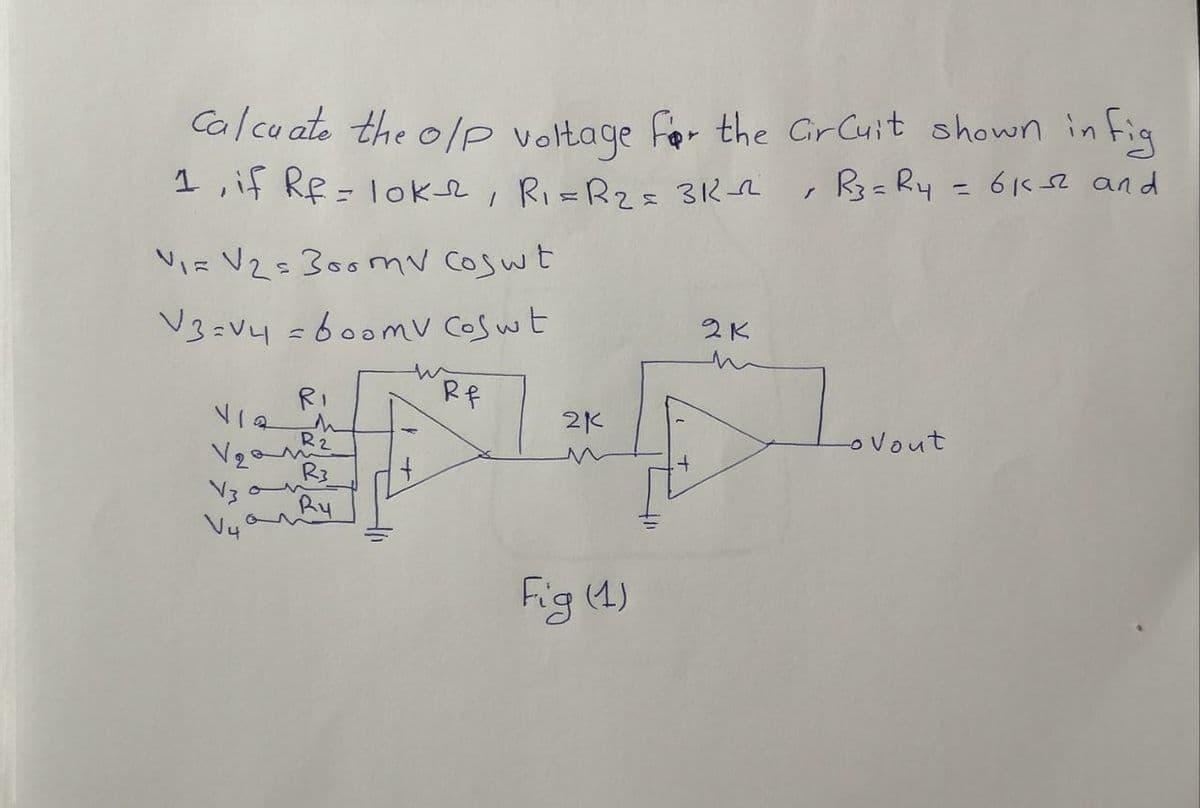 Calcuate the o/p voltage for the Circuit shown in fig
1 , if Rf = 10kΩ , R1 = R2 = 3KΩ , R3 = R4 = 6KΩ and
V1 = V2 = 300mV coswt
V3 = V4 = 600mV Coswt
2K
Rf
R1
V1
2K
R2
V2
- +
- +
Vout
R3
V3
R4
V4
Fig (1)